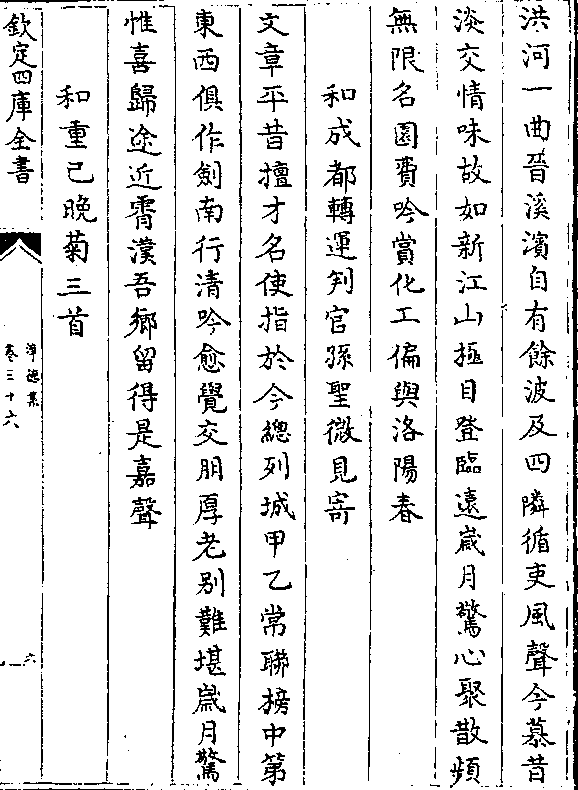 洪河一曲晉溪濱自有餘波及四隣循吏風聲今慕昔
淡交情味故如新江山極目登臨遠嵗月驚心聚散頻
無限名園費吟賞化工偏與洛陽春
和成都轉運判官孫聖微見寄
文章平昔擅才名使指於今總列城甲乙常聯榜中第
東西俱作劍南行清吟愈覺交朋厚老别難堪嵗月驚
惟喜歸途近霄漢吾鄉留得是嘉聲
和重己晩菊三首
欽定四庫全書
淨德集
卷三十六
六